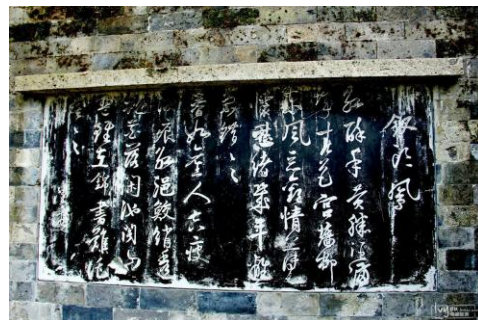 釵頭鳳
紅酥手黃縢酒滿
城春色宮墻柳
東風惡歡情薄一
懷愁緒幾年離
索錯々
春如舊人空瘦
淚痕紅浥鮫綃透
桃花落閑池閣山
盟雖在錦書難托
莫々